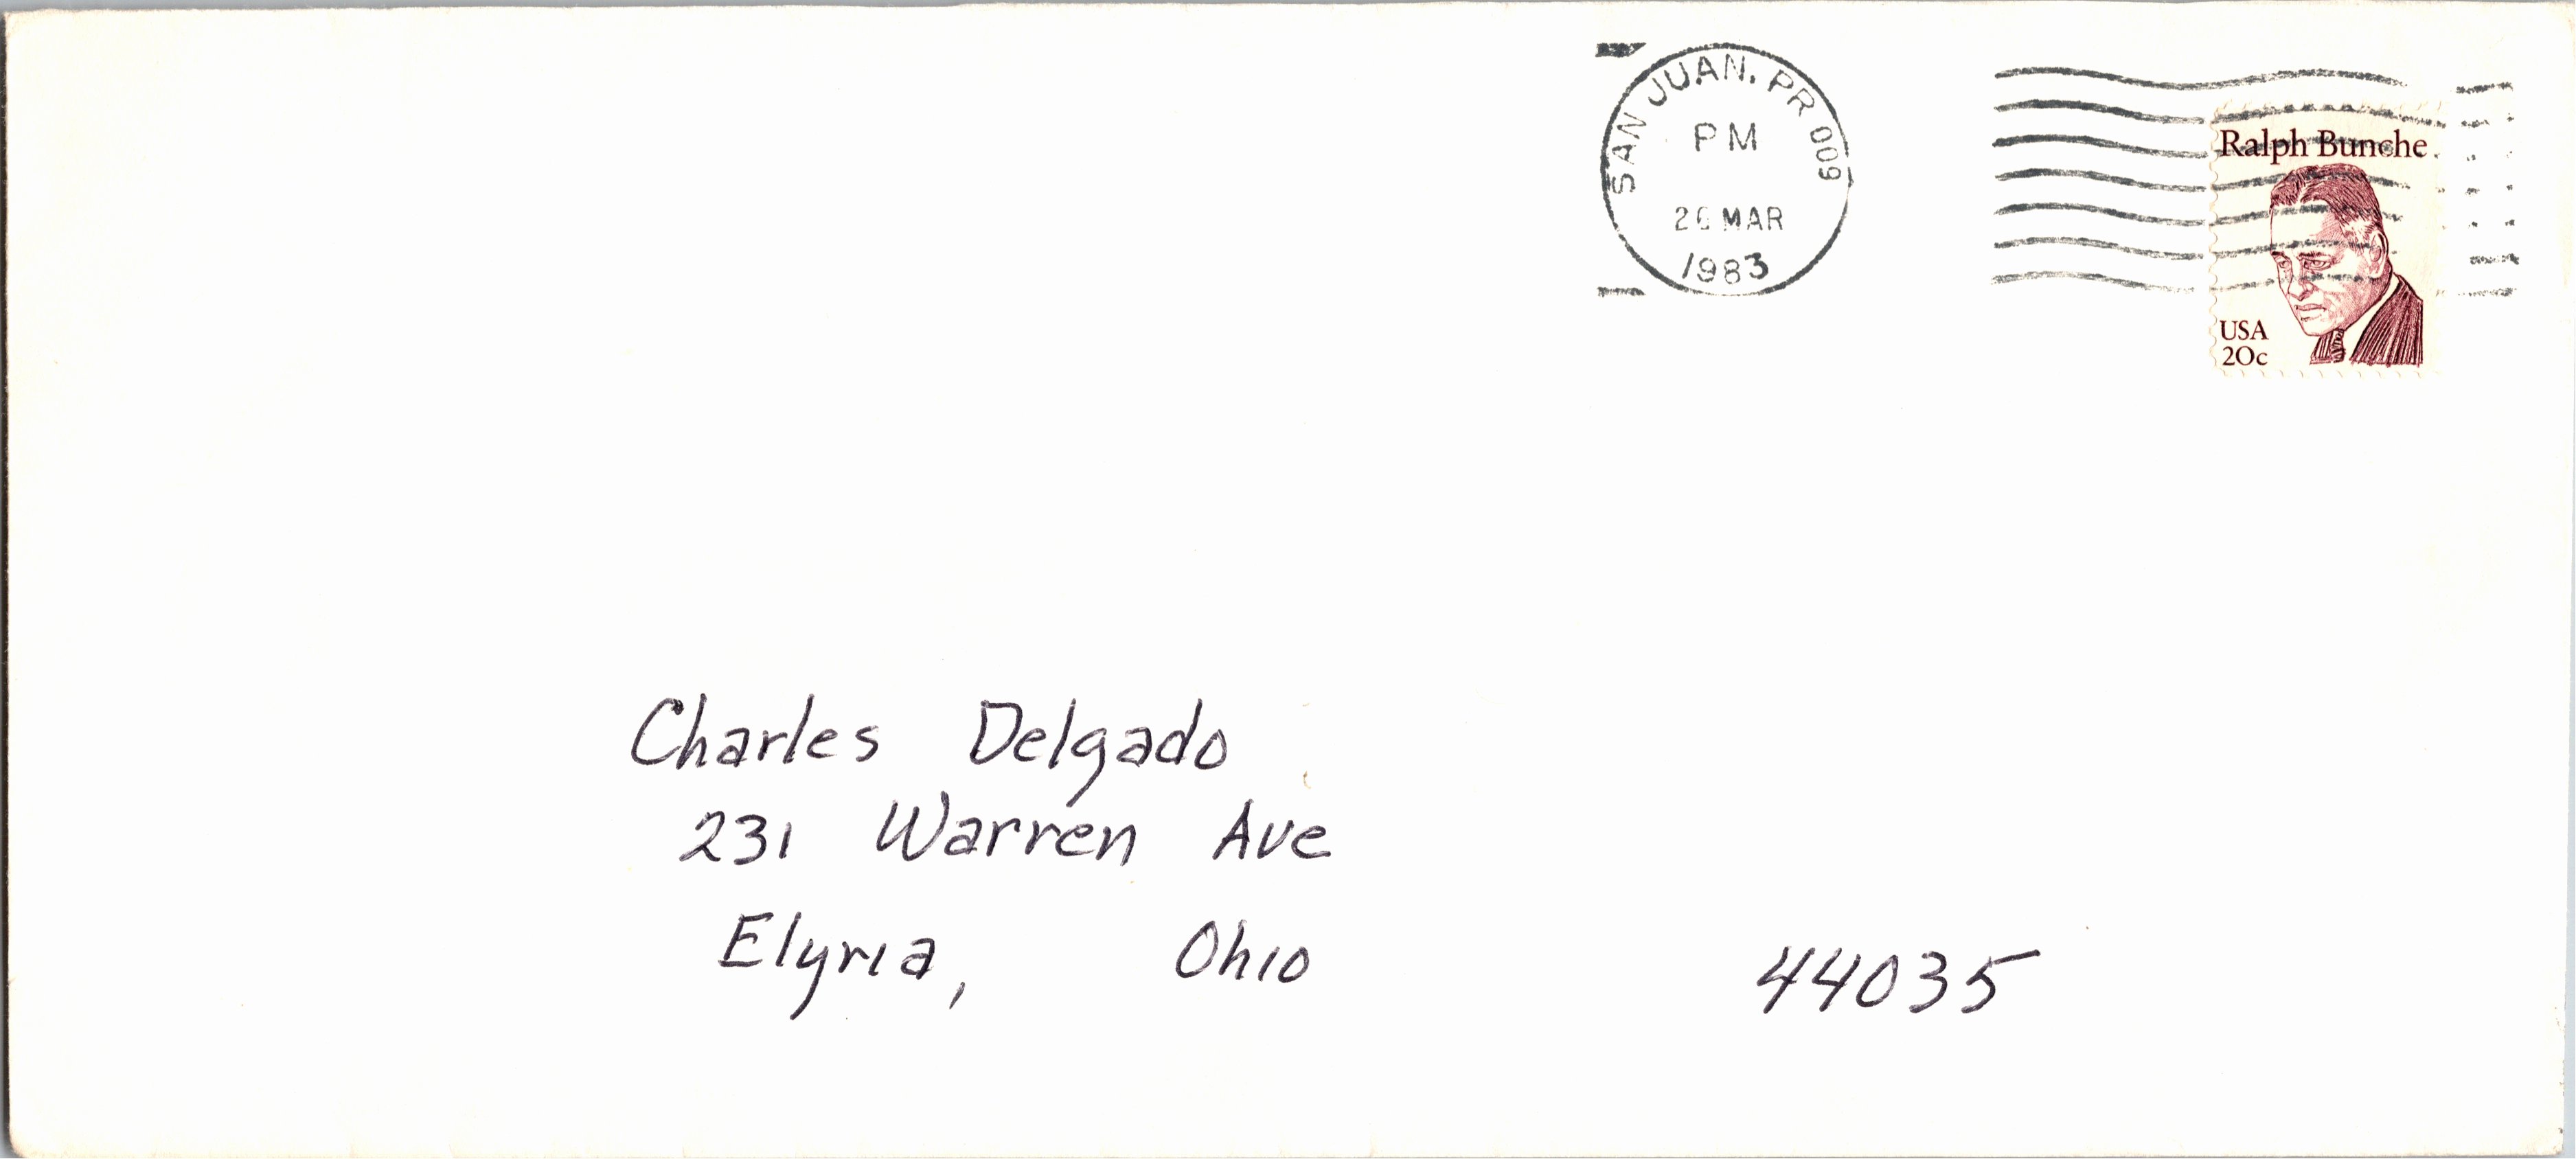 SAN JUAN, PR 009
PM
MAR
1983
Ralph Bunche
USA
20c
Charles Delgado
231 Warren Ave
Elyria, Ohio 44035